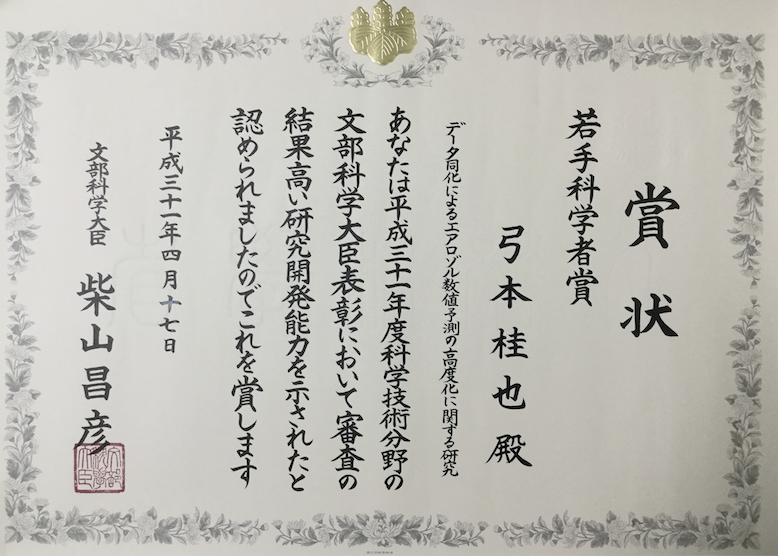 賞状
若手科学者賞
弓本桂也殿
データ同化によるエアロゾル数値予測の高度化に関する研究
あなたは平成三十一年度科学技術分野の
文部科学大臣表彰において審査の
結果高い研究開発能力を示されたと
認められましたのでこれを賞します
平成三十一年四月十七日
文部科学大臣
柴山昌彦